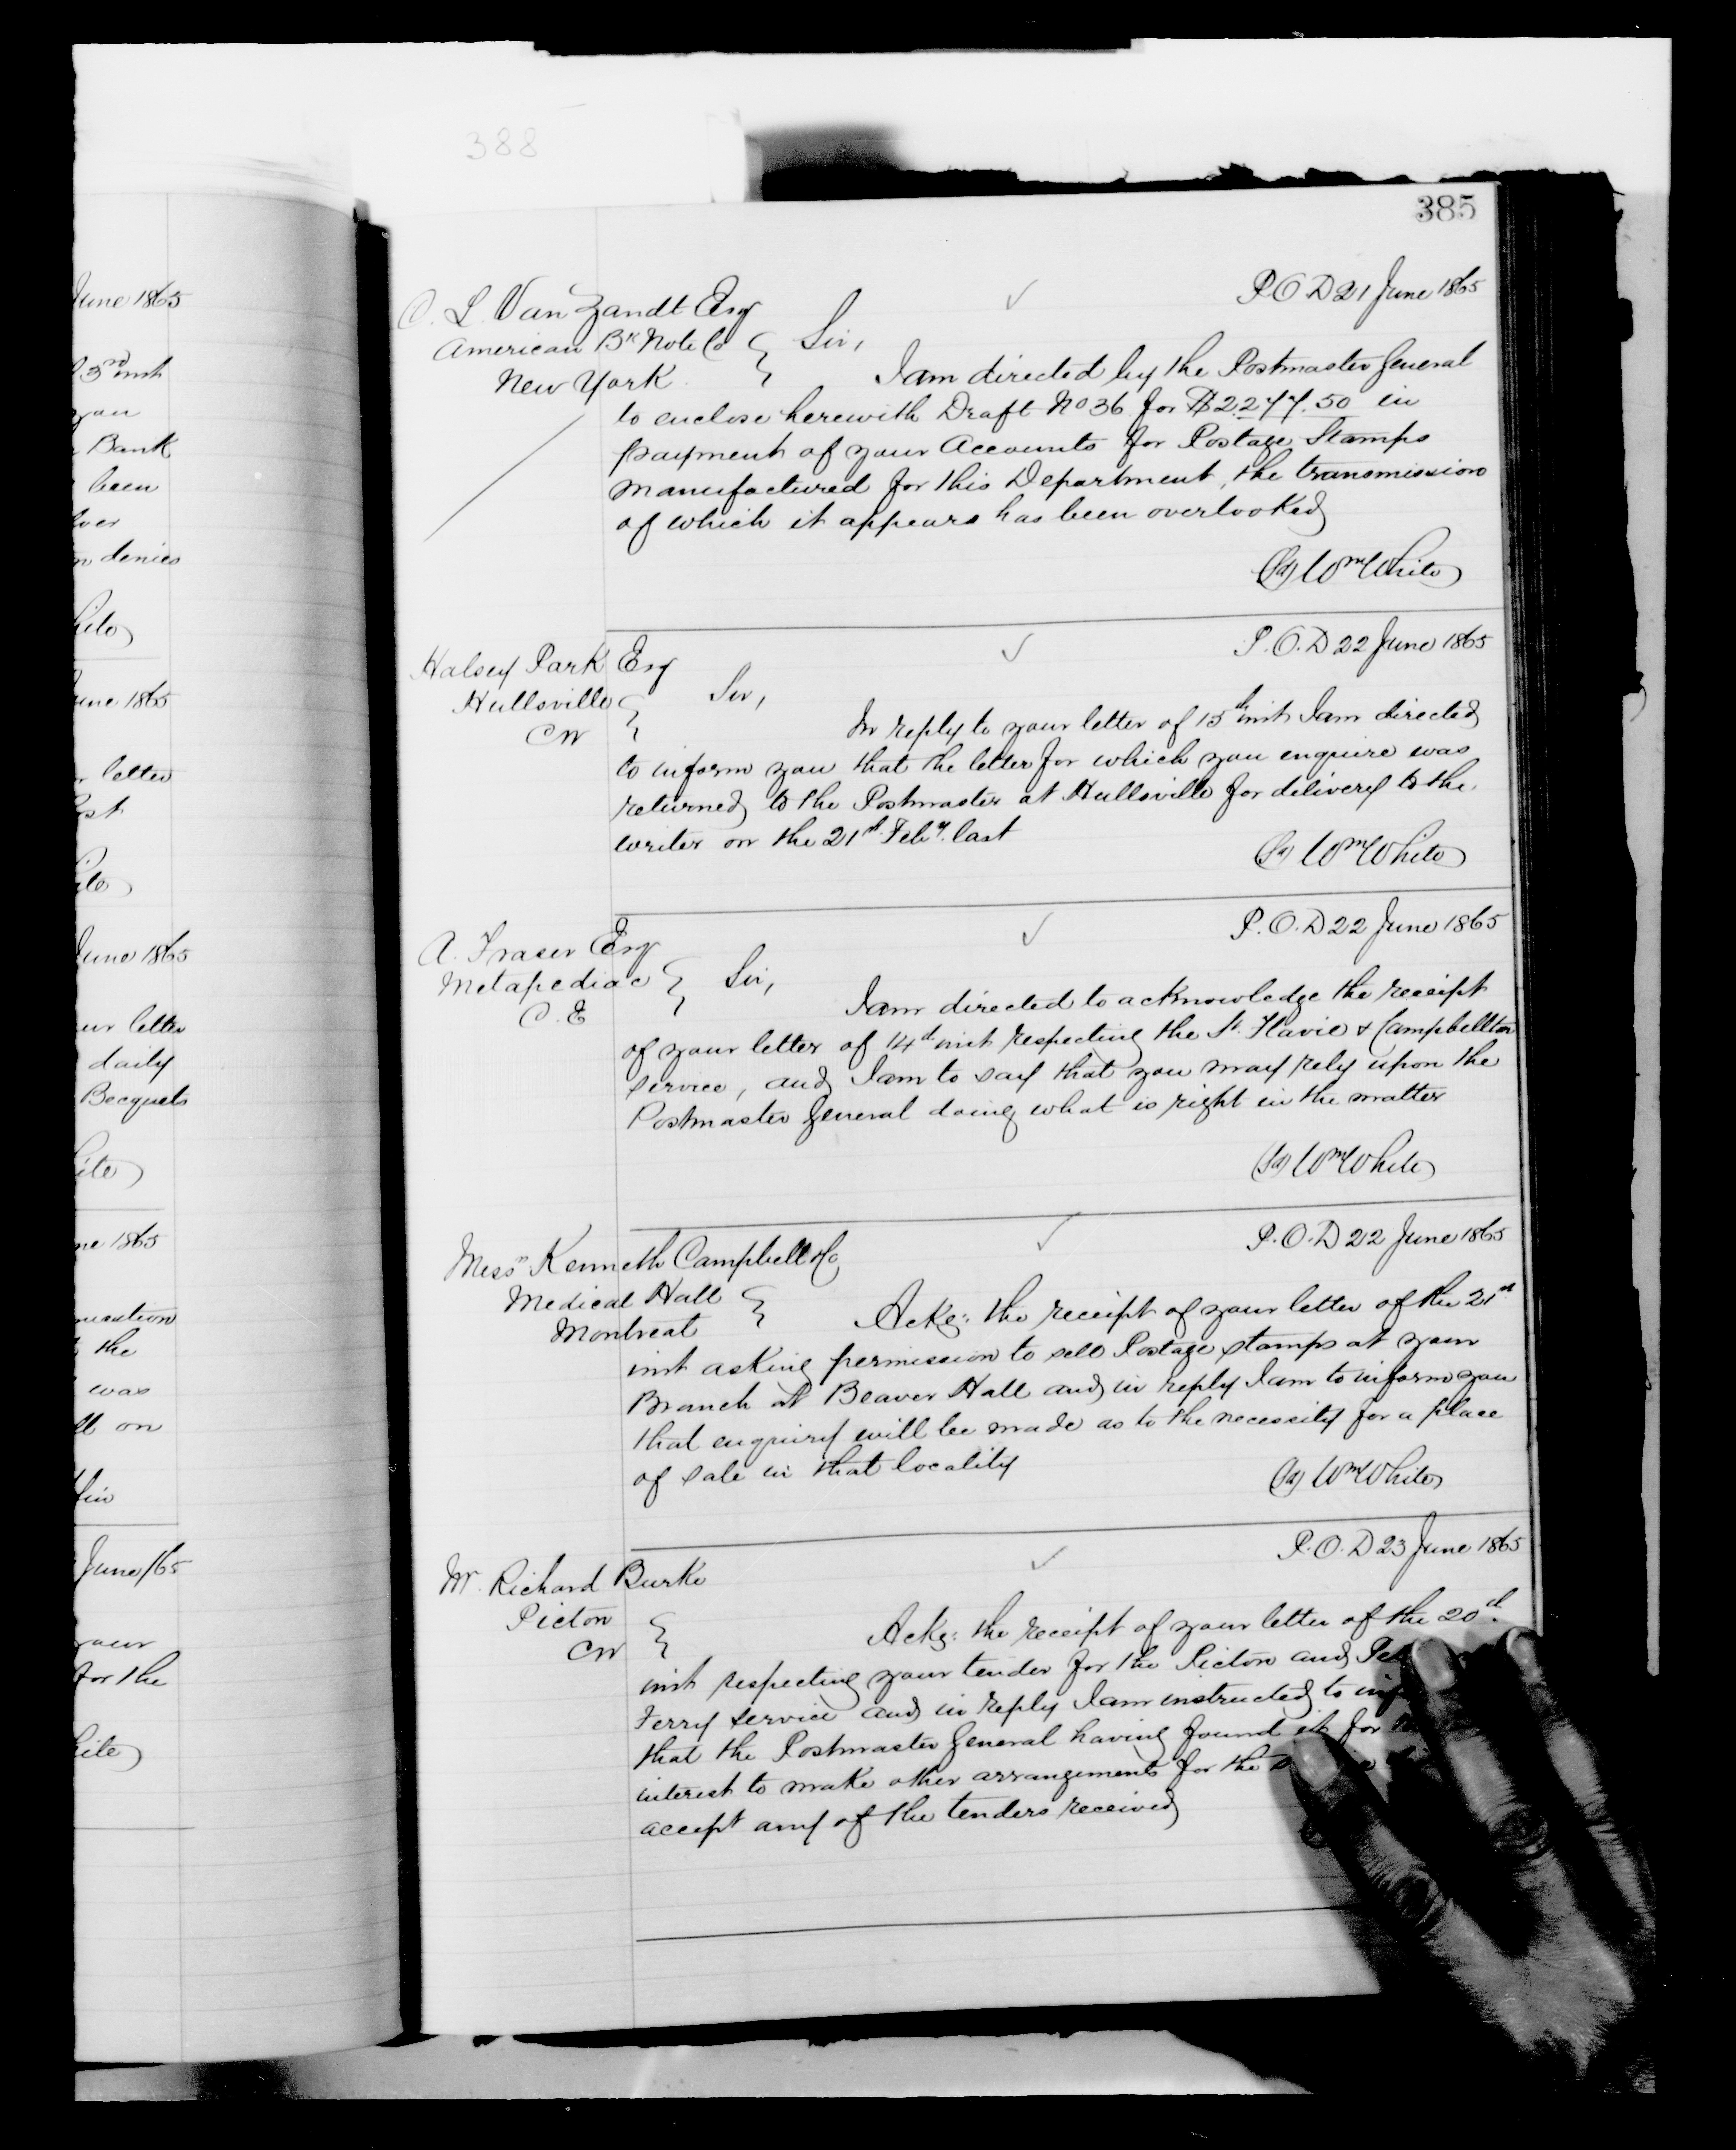 388
385
June 1865
3rd inst
you
Bank
been
over
denies
June 1865
letter
June 1865
letter
daily
Becquets
1865
the
was
on
June /65
your
for the
P.O.D 21 June 1865
C. L. Van Zandt Esq
American Bk Note Co
New York
Sir,
I am directed by the Postmaster General
to enclose herewith Draft No 36 for $2277.50 in
payment of your Accounts for Postage Stamps
manufactured for this Department, the transmission
of which it appears has been overlooked
(Sd) Wm White
P.O.D 22 June 1865
Halsey Park Esq
Hullsville
CW
Sir,
In reply to your letter of 15th inst I am directed
to inform you that the letter for which you enquire was
returned to the Postmaster at Hullsville for delivery to the
writer on the 21st Feby. last
(Sd) Wm White
P.O.D 22 June 1865
A. Fraser Esq
Metapediac
C.E
Sir,
I am directed to acknowledge the receipt
of your letter of 14th inst respecting the St. Flavie & Campbellton
service, and I am to say that you may rely upon the
Postmaster General doing what is right in the matter
(Sd) Wm White
P.O.D 22 June 1865
Messrs Kenneth Campbell & Co
Medical Hall
Montreal
Ackg: the receipt of your letter of the 21st
inst asking permission to sell Postage stamps at your
Branch at Beaver Hall and in reply I am to inform you
that enquiry will be made as to the necessity for a place
of sale in that locality
(Sd) Wm White
P.O.D 23 June 1865
Mr. Richard Burke
Picton
CW
Ackg: the receipt of your letter of the 20th
inst respecting your tender for the Picton and
Ferry service and in reply I am instructed to
that the Postmaster General having found it for
interest to make other arrangements for the
accept any of the tenders received